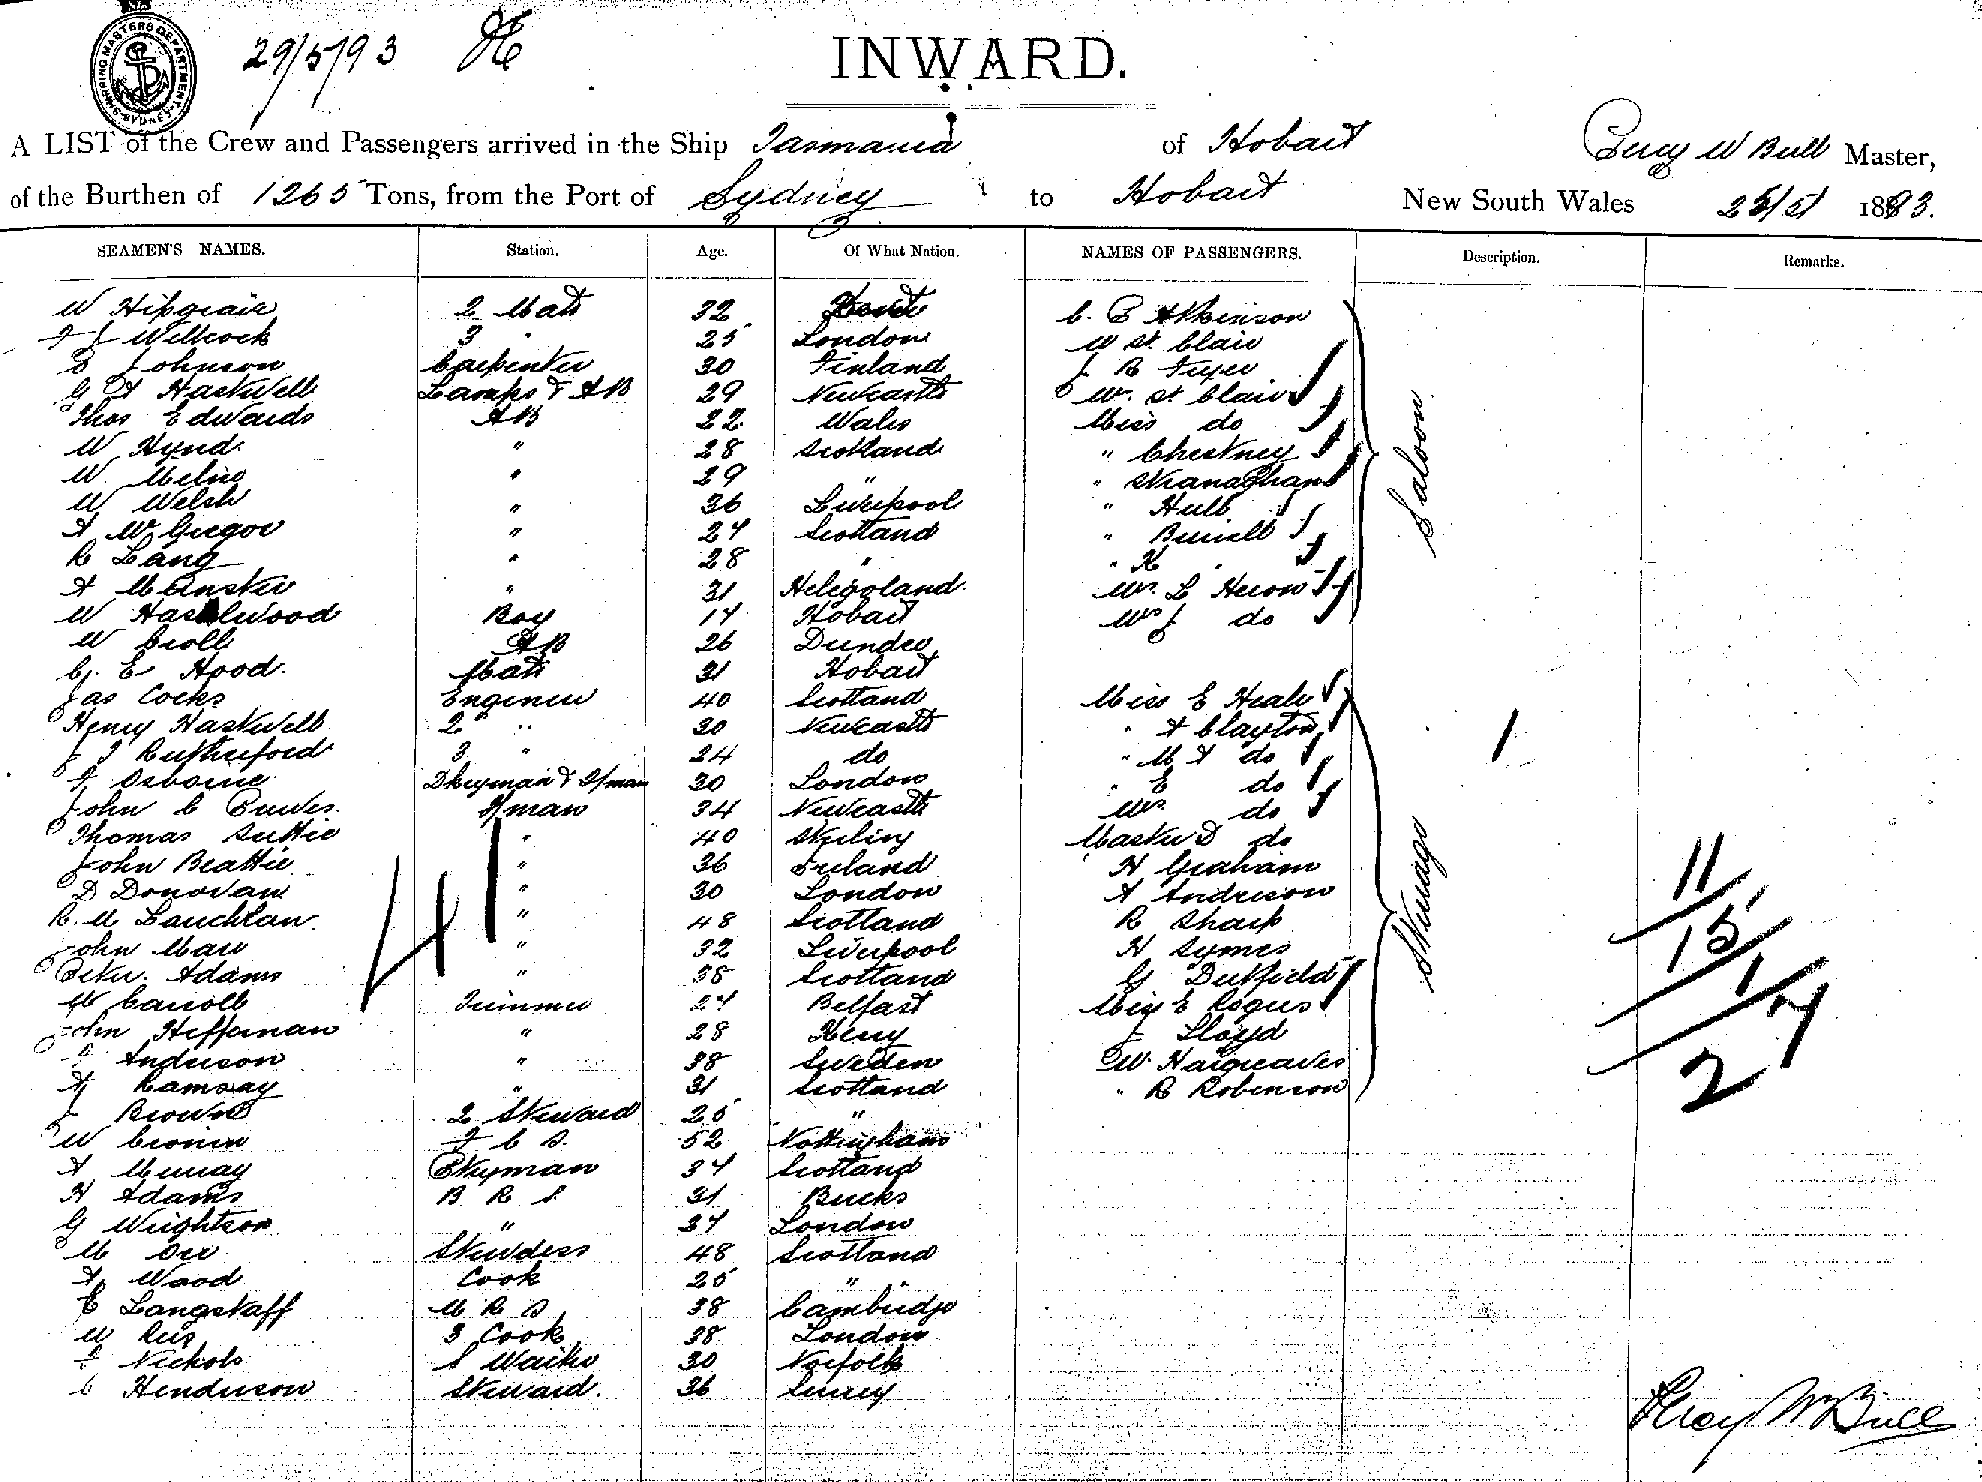 SHIPPING MASTERS DEPARTMENT SYDNEY
29/5/93
INWARD.
A LIST of the Crew and Passengers arrived in the Ship Tasmania of Hobart Percy W Bull Master,
of the Burthen of 1265 Tons, from the Port of Sydney to Hobart New South Wales 1893.
SEAMEN'S NAMES. Station. Age. Of What Nation. NAMES OF PASSENGERS. Description. Remarks.
W 2 Mate 32 C. E Atkinson
Wellcock 3 " 25 London W St Clair
Johnson Carpenter 30 Finland J. R
G A Haskwell Lamps & AB 29 Newcastle St Clair
Thos Edwards AB 22 Wales Miss do
W Hynd " 28 Scotland " Chestney
W. Milne " 29 " " Stranaghan
W Welsh " 36 Liverpool " Hull
A McGregor " 24 Scotland "
R Lang " 28 " "
A " 31 Heligoland. L Heron
W Haslewood Boy 14 Hobart J do
W Croll AB 26 Dundee
G. E Hood. Mate 31 Hobart
Jas Cocks Engineer 40 Scotland Miss E Heale
Henry Haskwell 2 " 30 Newcastle " A Clayton
J J Rutherford 3 " 24 do " M A do
F Osborne Dkeyman & F/man 30 London " E do
John C F/man 34 Newcastle do
Thomas Suttie " 40 Stirling Master D do
John Beattie " 36 Ireland H Graham
D Donovan " 30 London A Anderson
R. M Lauchlan. " 48 Scotland R Sharp
John Marr " 32 Liverpool H Symes
Peter Adams " 38 Scotland G Dutfield
W Carroll Trimmer 24 Belfast Miss E Rogers
John Heffernan " 28 Kerry J Lloyd
Anderson " 38 Sweden W. Hargreaves
A Ramsay " 31 Scotland " R Robinson
J Brown 2 Steward 25 "
W Cronin F C S. 52 Nottingham
A Murray Storeman 34 Scotland
H Adams B R S 31 Bucks
G Wrightson " 34 London
M Orr Stewdess 48 Scotland
A Wood Cook 25 "
E Langstaff M R S 38 Cambridge
W Reis 3 Cook 38 London
F Nichols S Waiter 30 Norfolk
C Henderson Steward. 36 Surrey
Saloon
Steerage
41
1
11
15
1
27
Percy W Bull